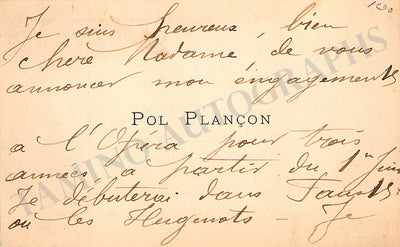 100
Je suis heureux, bien
chère Madame, de vous
annoncer mon engagement
POL PLANÇON
à l'Opéra pour trois
années, à partir du 1er Juin
Je débuterai dans Faust
ou les Hugenots - Je
TAMINO AUTOGRAPHS